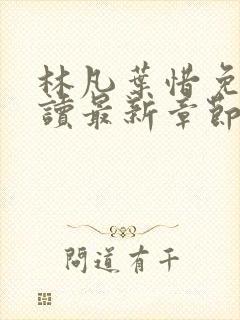 林凡葉惜免
讀最新章節
問道有千